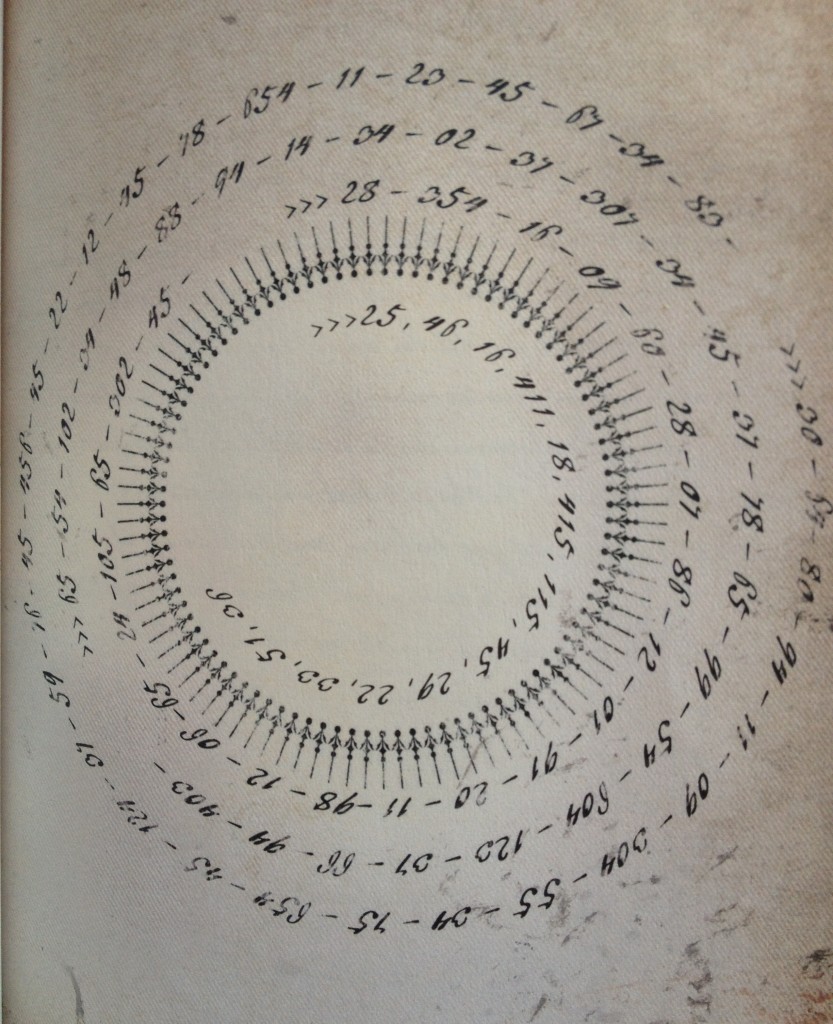 >>> 30 - 54 - 80 - 94 - 11 - 09 - 304 - 55 - 34 - 75 - 654 - 45 - 124 - 37 - 59 - 76 - 45 - 456 - 45 - 22 - 12 - 45 - 78 - 654 - 11 - 23 - 45 - 67 - 34 - 83 -
>>> 65 - 54 - 102 - 34 - 48 - 88 - 94 - 14 - 34 - 02 - 37 - 307 - 34 - 45 - 37 - 78 - 65 - 99 - 54 - 604 - 123 - 37 - 66 - 94 - 403 -
>>> 28 - 354 - 16 - 09 - 63 - 28 - 07 - 86 - 12 - 01 - 91 - 20 - 11 - 98 - 12 - 06 - 65 - 24 - 105 - 65 - 302 - 45 -
>>> 25, 46, 16, 411, 18, 415, 115, 45, 29, 22, 33, 51, 36